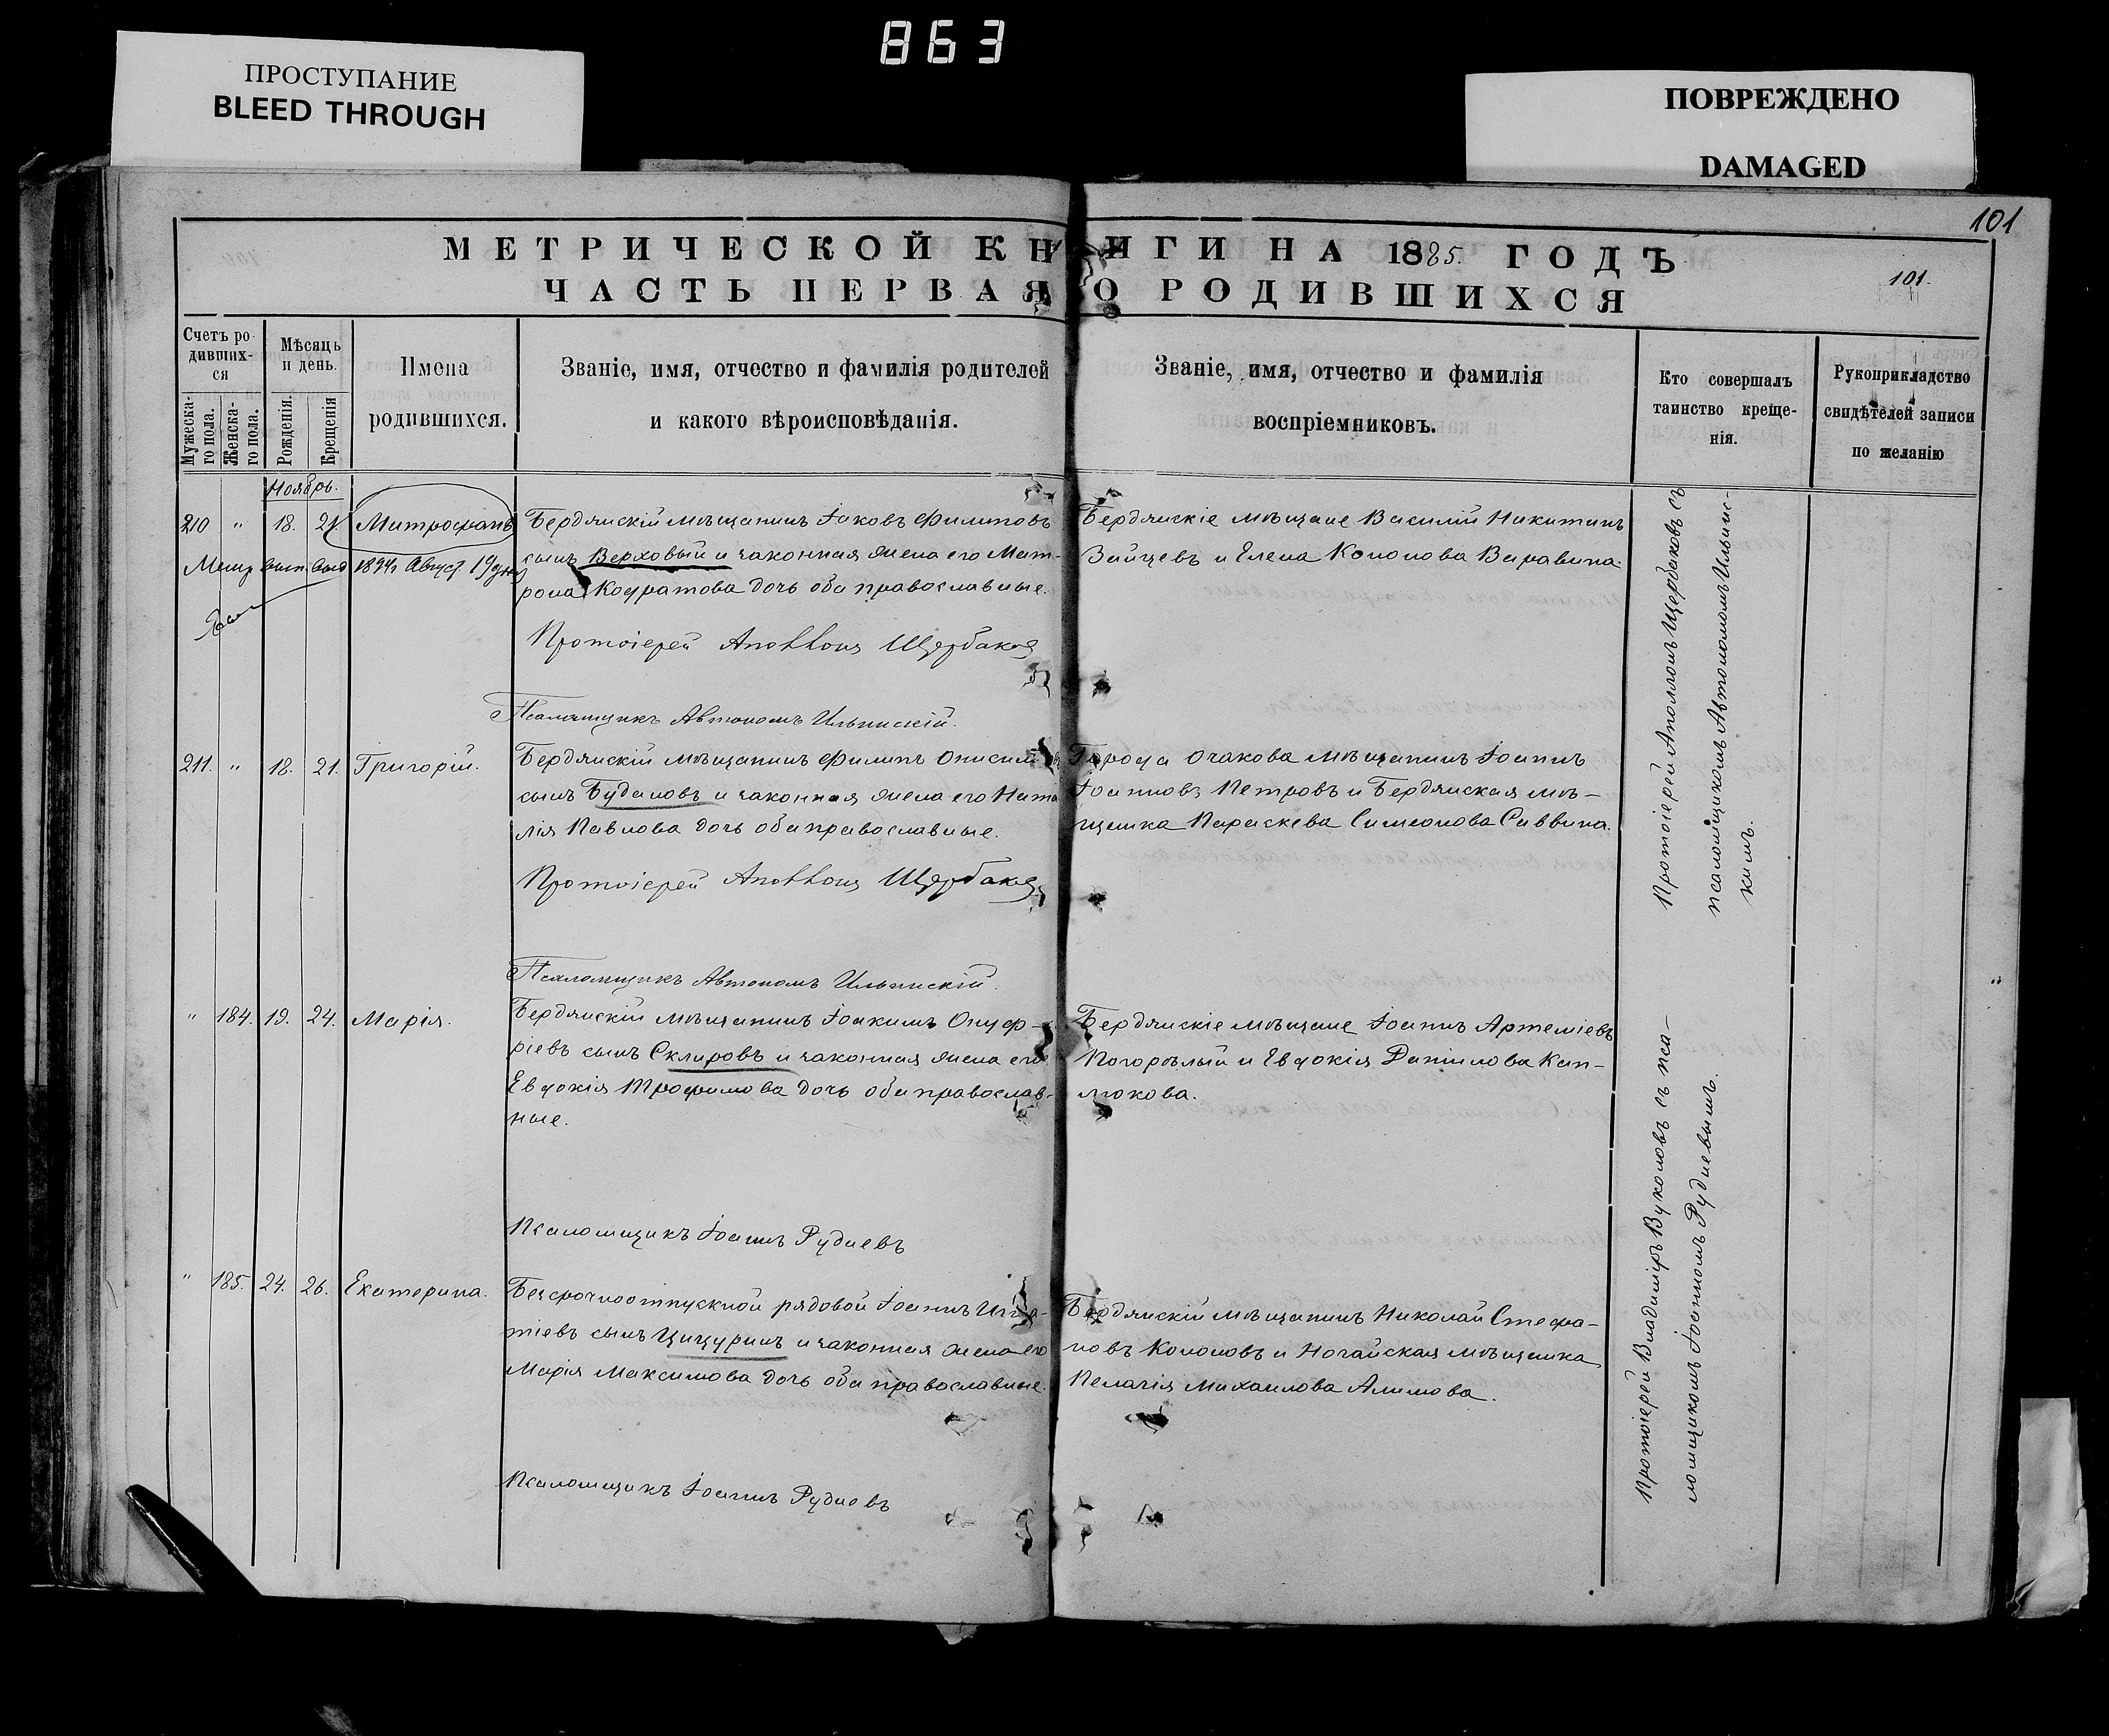 863
ПРОСТУПАНИЕ
BLEED THROUGH
ПОВРЕЖДЕНО
DAMAGED
101
МЕТРИЧЕСКОЙ КНИГИ НА 1885. ГОДЪ
101.
ЧАСТЬ ПЕРВАЯ О РОДИВШИХСЯ
Счетъ ро-
дивших-
ся
Мужеска-
го пола.
Женска-
го пола.
Мѣсяцъ
и день.
Рожденія.
Крещенія
Имена
родившихся.
Званіе, имя, отчество и фамилія родителей
и какого вѣроисповѣданія.
Званіе, имя, отчество и фамилія
воспріемниковъ.
Кто совершалъ
таинство креще-
нія.
Рукоприкладство
свидѣтелей записи
по желанію
Ноябрь.
210 " 18. 21 Митрофанъ
Метр вып. выд 1894 Август 19 дня
Бердянскій мѣщанинъ Іаковъ Филиповъ
сынъ Верховый и законная жена его Мат-
рона Кодратова дочь оба православные.
Протоіерей Аполлонъ Щербаковъ
Псаломщикъ Автономъ Ильинскій.
Бердянскіе мѣщане Василій Никитинъ
Зайцевъ и Елена Кононова Варавина.
211. " 18. 21. Григорій.
Бердянскій мѣщанинъ Филипъ Онисимовъ
сынъ Будановъ и законная жена его Ната
лія Павлова дочь оба православные.
Протоіерей Аполлонъ Щербаковъ
Псаломщикъ Автономъ Ильинскій.
Города Очакова мѣщанинъ Іоаннъ
Іоанновъ Петровъ и Бердянская мѣ-
щанка Параскева Симеонова Саввина.
Протоіерей Аполлонъ Щербаковъ съ
псаломщикомъ Автономомъ Ильинс-
кимъ.
" 184. 19. 24. Марія.
Бердянскій мѣщанинъ Іоакимъ Онуф-
ріевъ сынъ Скляровъ и законная жена его
Евдокія Трофимова дочь оба православ-
ные.
Псаломщикъ Іоаннъ Рудневъ
Бердянскіе мѣщане Іоаннъ Артеміевъ
Погорѣлый и Евдокія Даніилова Кап-
люкова.
" 185. 24. 26. Екатерина.
Безсрочноотпускной рядовой Іоаннъ Игна-
тіевъ сынъ Цицуринъ и законная жена его
Марія Максимова дочь оба православные.
Псаломщикъ Іоаннъ Рудневъ
Бердянскій мѣщанинъ Николай Стефа-
новъ Кононовъ и Ногайская мѣщанка
Пелагія Михаилова Алимова.
Протоіерей Владиміръ Вуколовъ съ пса-
ломщикомъ Іоанномъ Рудневымъ.